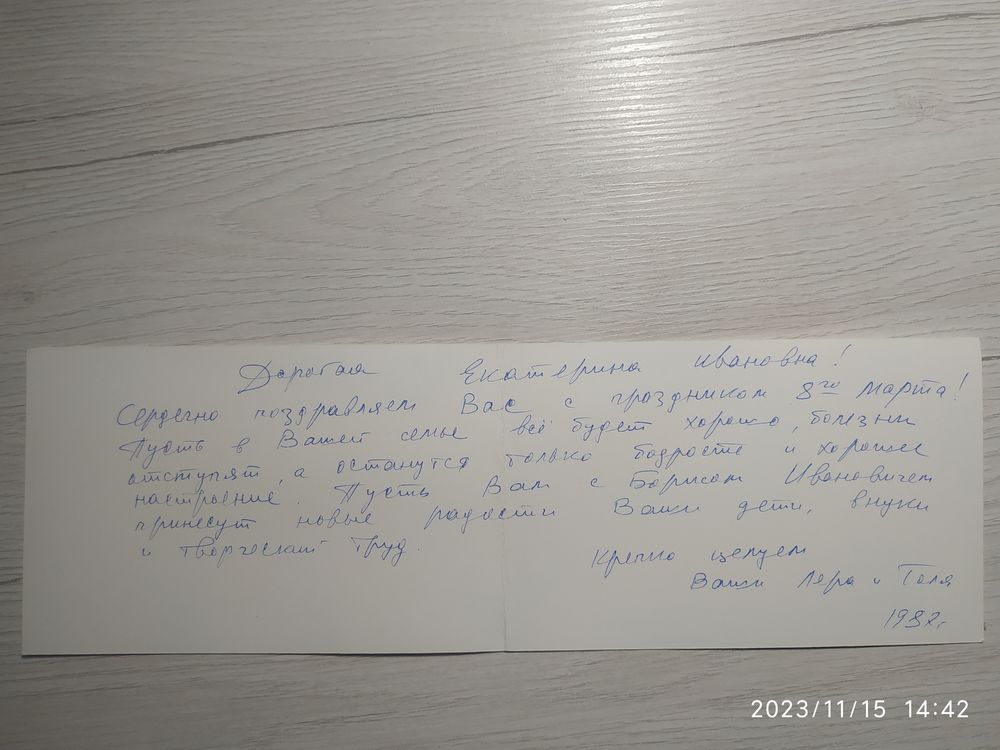 Дорогая Екатерина Ивановна!
Сердечно поздравляем Вас с праздником 8го Марта!
Пусть в Вашей семье всё будет хорошо, болезни
отступят, а останутся только бодрость и хорошее
настроение. Пусть Вам с Борисом Ивановичем
принесут новые радости Ваши дети, внуки
и творческий труд.
Крепко целуем
Ваши Лера и Толя
2023/11/15 14:42